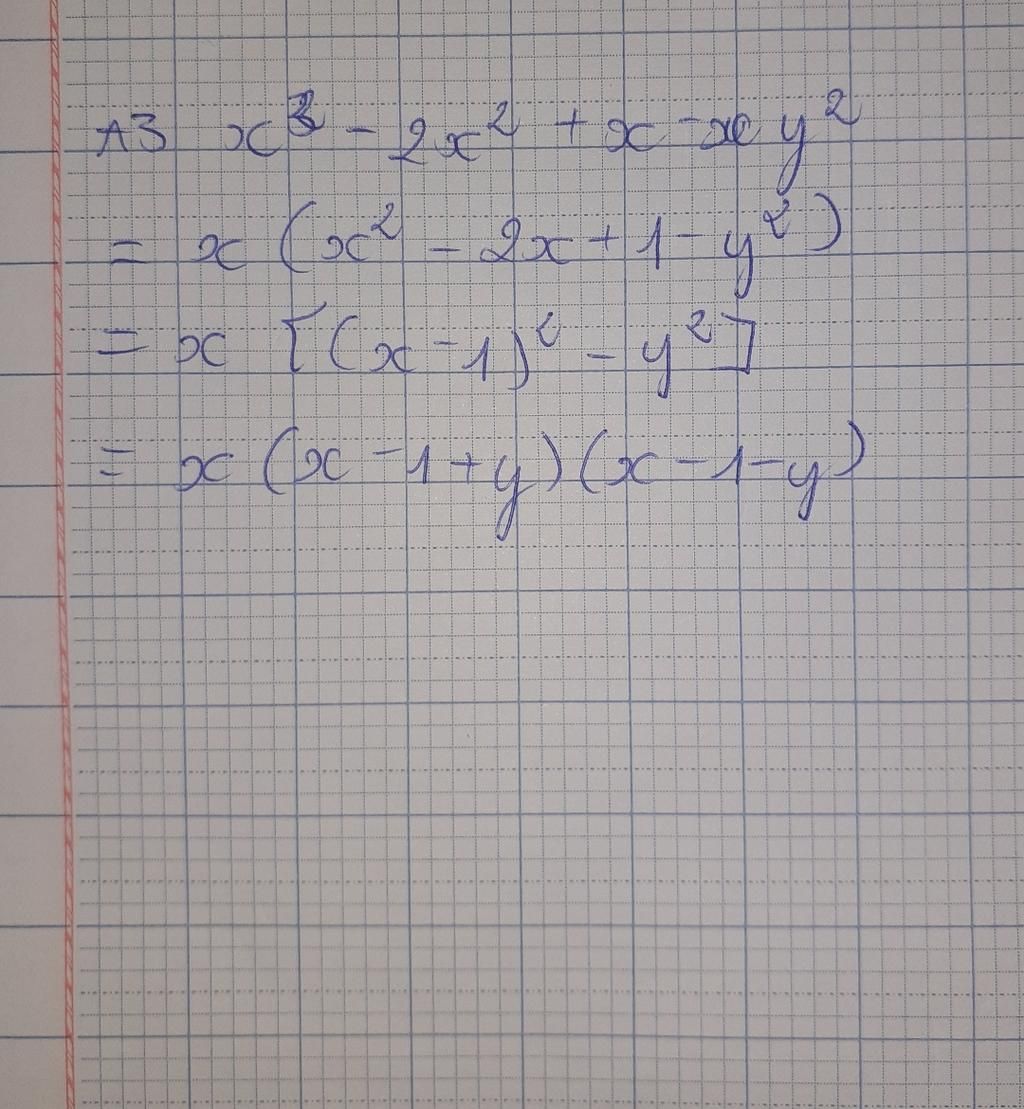 A3 x³ - 2x² + x - xy²
= x (x² - 2x + 1 - y²)
= x [(x - 1)² - y²]
= x (x - 1 + y)(x - 1 - y)